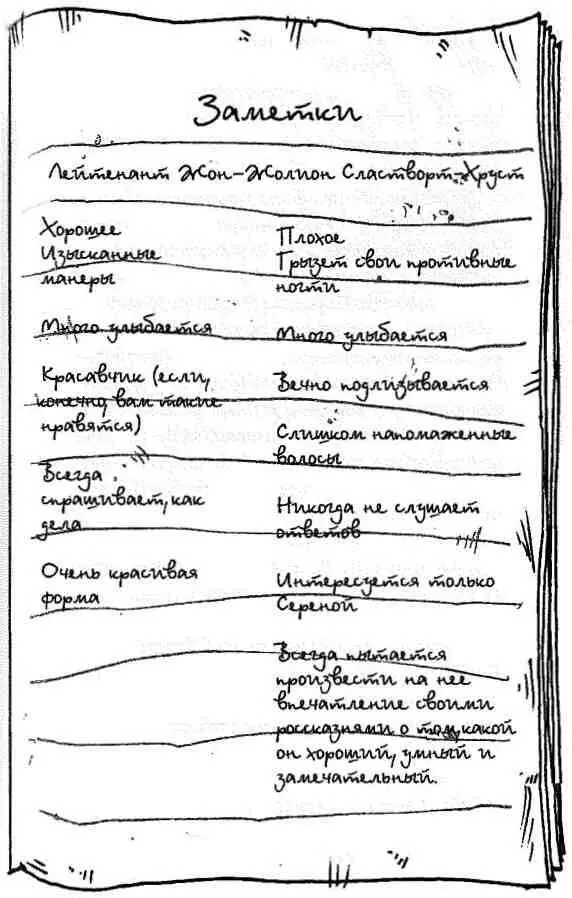 Заметки
Лейтенант Жон-Жолион Сластворт-Хруст
Хорошее
Изысканные
манеры
Много улыбается
Красавчик (если,
конечно, вам такие
нравятся)
Всегда
спрашивает, как
дела
Очень красивая
форма
Плохое
Грызет свои противные
ногти
Много улыбается
Вечно подлизывается
Слишком напомаженные
волосы
Никогда не слушает
ответов
Интересуется только
Сереной
Всегда пытается
произвести на нее
впечатление своими
россказнями о том, какой
он хороший, умный и
замечательный.